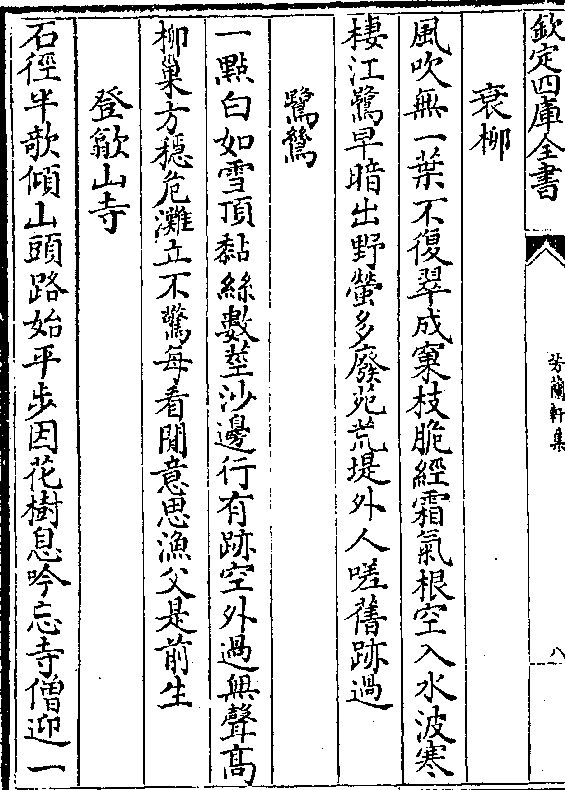 欽定四庫全書
芳蘭軒集
八
衰柳
風吹無一葉不復翠成窠枝脆經霜氣根空入水波寒
棲江鷺早暗出野螢多廢苑荒堤外人嗟舊跡過
鷺鷥
一點白如雪頂黏絲數莖沙邊行有跡空外過無聲高
柳巢方穩危灘立不驚每看閒意思漁父是前生
登歙山寺
石徑半欹傾山頭路始平步因花樹息吟忘寺僧迎一